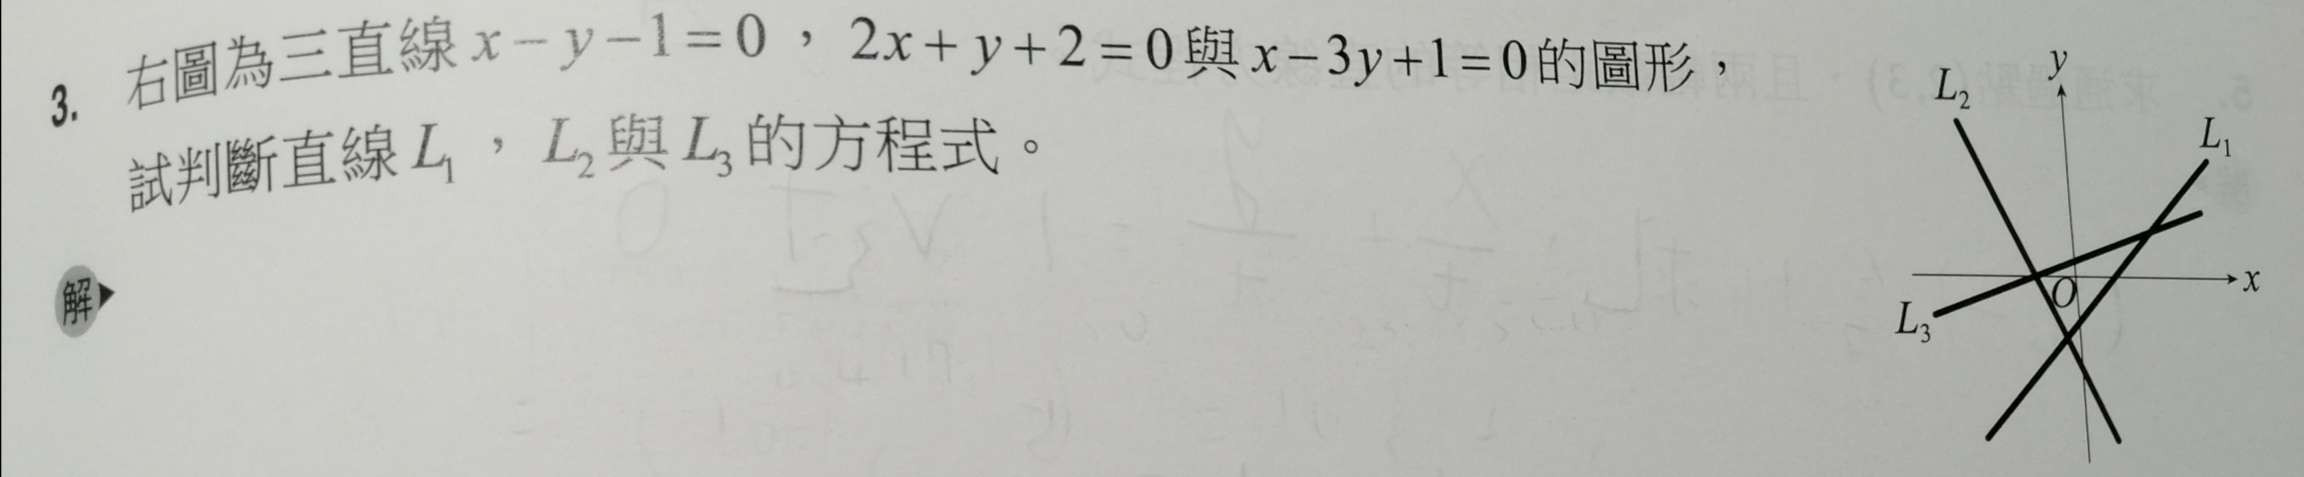 3. 右圖為三直線 x－y－1＝0，2x＋y＋2＝0 與 x－3y＋1＝0 的圖形，
試判斷直線 L₁，L₂ 與 L₃ 的方程式。
解
y
L₂
L₁
x
O
L₃